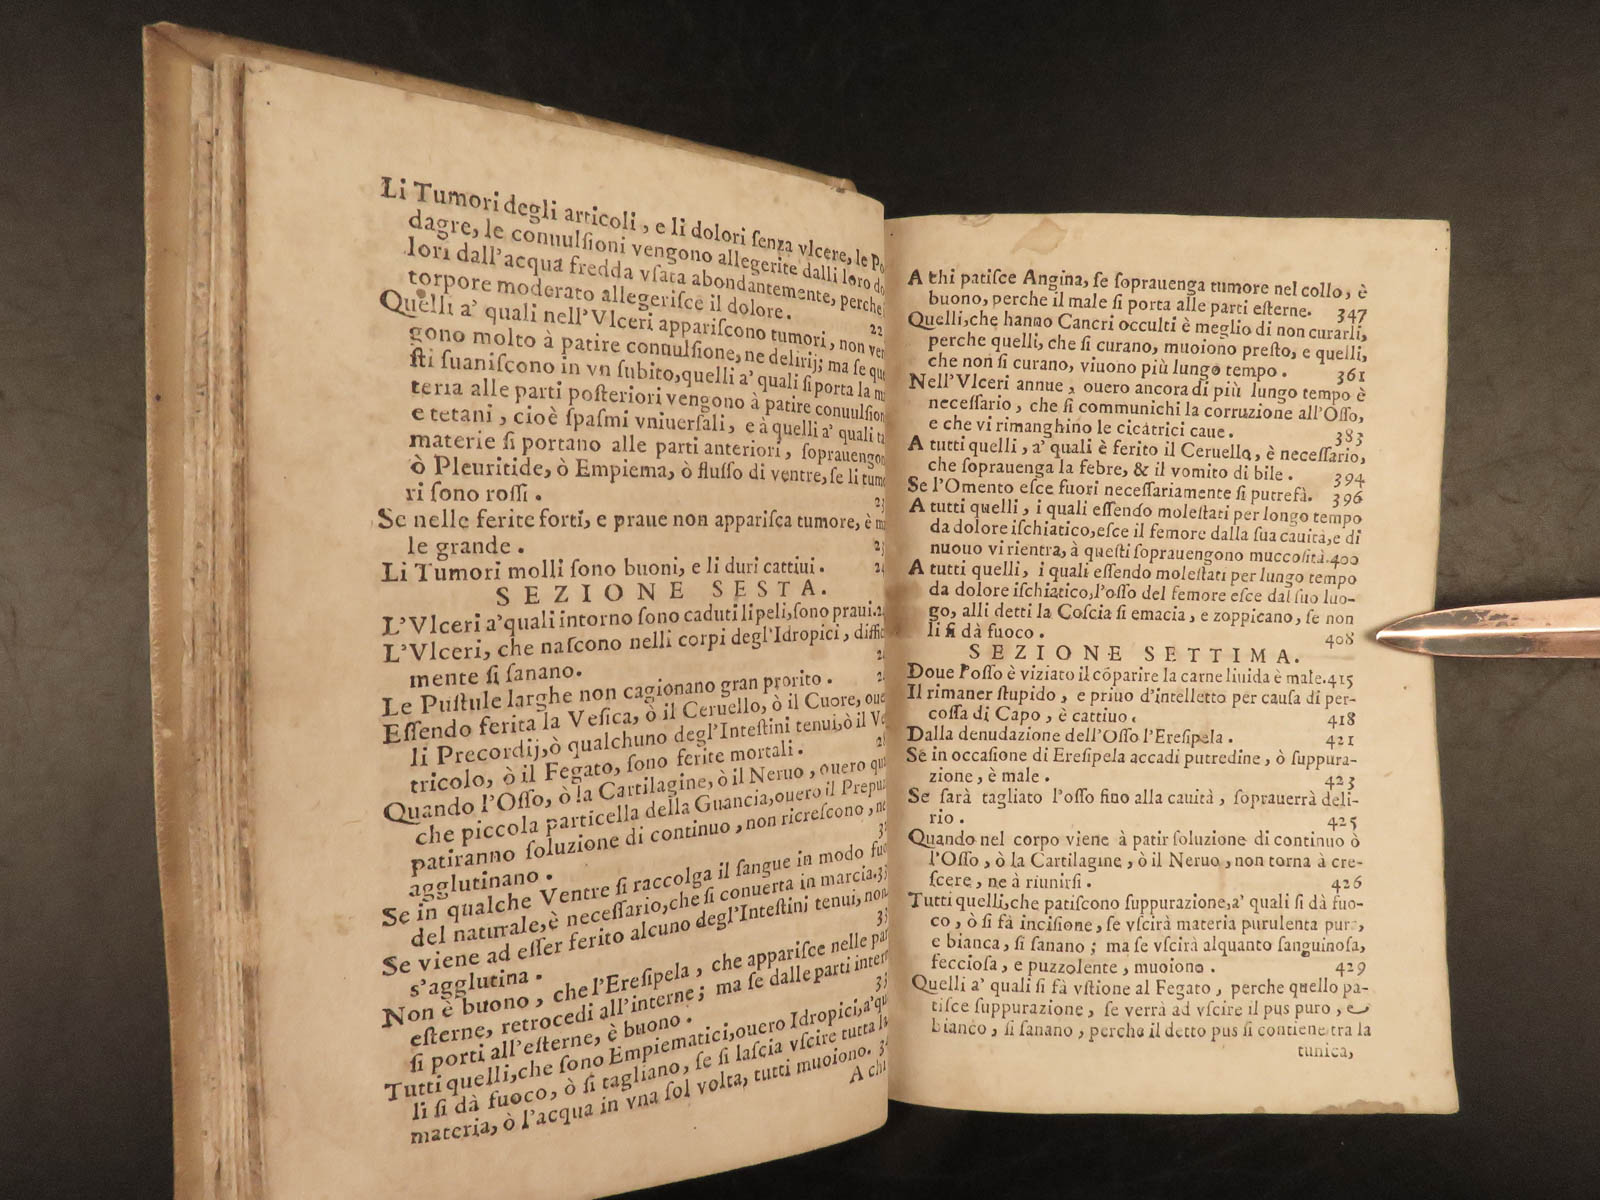 Li Tumori degli articoli, e li dolori ſenza vlcere, le Po
dagre, le conuulſioni vengono allegerite dalli loro do
lori dall'acqua fredda vſata abondantemente, perche
torpore moderato allegeriſce il dolore. 22
Quelli a' quali nell'Vlceri appariſcono tumori, non ven
gono molto à patire conuulſione, ne delirij; ma ſe que
ſti ſuaniſcono in vn ſubito, quelli a' quali ſi porta la ma
teria alle parti poſteriori vengono à patire conuulſion
e tetani, cioè ſpaſmi vniuerſali, e à quelli a' quali ta
materie ſi portano alle parti anteriori, ſoprauengon
ò Pleuritide, ò Empiema, ò fluſſo di ventre, ſe li tumo
ri ſono roſſi. 23
Se nelle ferite forti, e praue non appariſca tumore, è ma
le grande. 23
Li Tumori molli ſono buoni, e li duri cattiui. 24
SEZIONE SESTA.
L'Vlceri a'quali intorno ſono caduti li peli, ſono praui.24
L'Vlceri, che naſcono nelli corpi degl'Idropici, diffici
mente ſi ſanano.
Le Puſtule larghe non cagionano gran prorito.
Eſſendo ferita la Veſica, ò il Ceruello, ò il Cuore, oue
li Precordij, ò qualchuno degl'Inteſtini tenui, ò il Ve
tricolo, ò il Fegato, ſono ferite mortali.
Quando l'Oſſo, ò la Cartilagine, ò il Neruo, ouero qua
che piccola particella della Guancia, ouero il Prepu
patiranno ſoluzione di continuo, non ricreſcono, ne
agglutinano.
Se in qualche Ventre ſi raccolga il ſangue in modo fuo
del naturale, è neceſſario, che ſi conuerta in marcia.33
Se viene ad eſſer ferito alcuno degl'Inteſtini tenui, non
s'agglutina. 33
Non è buono, che l'Ereſipela, che appariſce nelle par
eſterne, retrocedi all'interne; ma ſe dalle parti intern
ſi porti all'eſterne, è buono. 33
Tutti quelli, che ſono Empiematici, ouero Idropici, a'qu
li ſi dà fuoco, ò ſi tagliano, ſe ſi laſcia vſcire tutta la
materia, ò l'acqua in vna ſol volta, tutti muoiono. 34
A chi
A chi patiſce Angina, ſe ſoprauenga tumore nel collo, è
buono, perche il male ſi porta alle parti eſterne. 347
Quelli, che hanno Cancri occulti è meglio di non curarli,
perche quelli, che ſi curano, muoiono preſto, e quelli,
che non ſi curano, viuono più lungo tempo. 361
Nell'Vlceri annue, ouero ancora di più lungo tempo è
neceſſario, che ſi communichi la corruzione all'Oſſo,
e che vi rimanghino le cicàtrici caue. 383
A tutti quelli, a' quali è ferito il Ceruello, è neceſſario,
che ſoprauenga la febre, & il vomito di bile. 394
Se l'Omento eſce fuori neceſſariamente ſi putrefà. 396
A tutti quelli, i quali eſſendo moleſtati per longo tempo
da dolore iſchiatico, eſce il femore dalla ſua cauità, e di
nuouo vi rientra, à queſti ſoprauengono muccoſità.400
A tutti quelli, i quali eſſendo moleſtati per lungo tempo
da dolore iſchiatico, l'oſſo del femore eſce dal ſuo luo-
go, alli detti la Coſcia ſi emacia, e zoppicano, ſe non
li ſi dà fuoco. 408
SEZIONE SETTIMA.
Doue l'oſſo è viziato il cōparire la carne liuida è male.415
Il rimaner ſtupido, e priuo d'intelletto per cauſa di per-
coſſa di Capo, è cattiuo. 418
Dalla denudazione dell'Oſſo l'Ereſipela. 421
Se in occaſione di Ereſipela accadi putredine, ò ſuppura-
zione, è male. 423
Se ſarà tagliato l'oſſo fino alla cauità, ſoprauerrà deli-
rio. 425
Quando nel corpo viene à patir ſoluzione di continuo ò
l'Oſſo, ò la Cartilagine, ò il Neruo, non torna à cre-
ſcere, ne à riunirſi. 426
Tutti quelli, che patiſcono ſuppurazione, a' quali ſi dà fuo-
co, ò ſi fà inciſione, ſe vſcirà materia purulenta pura,
e bianca, ſi ſanano; ma ſe vſcirà alquanto ſanguinoſa,
feccioſa, e puzzolente, muoiono. 429
Quelli a' quali ſi fà vſtione al Fegato, perche quello pa-
tiſce ſuppurazione, ſe verrà ad vſcire il pus puro, e
bianco, ſi ſanano, perche il detto pus ſi contiene tra la
tunica,